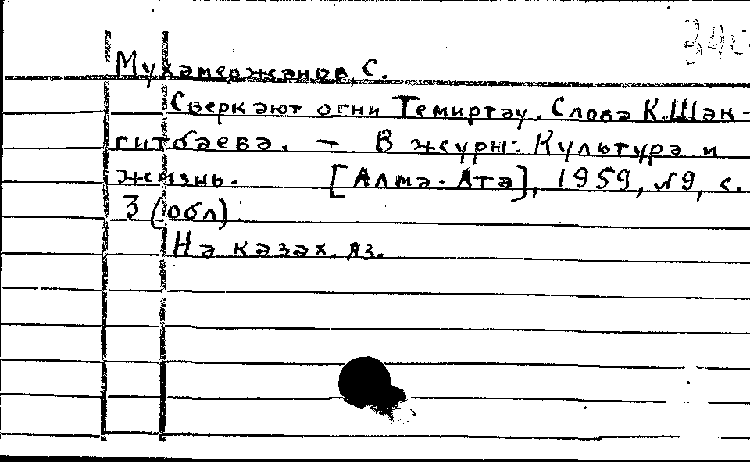 Мухамеджанов С.
Сверкают огни Темиртау. Слова К.Шан-
гитбаева. — В журн: Культура и
жизнь. [Алма-Ата], 1959, №9, с.
3 (обл)
На казах. яз.